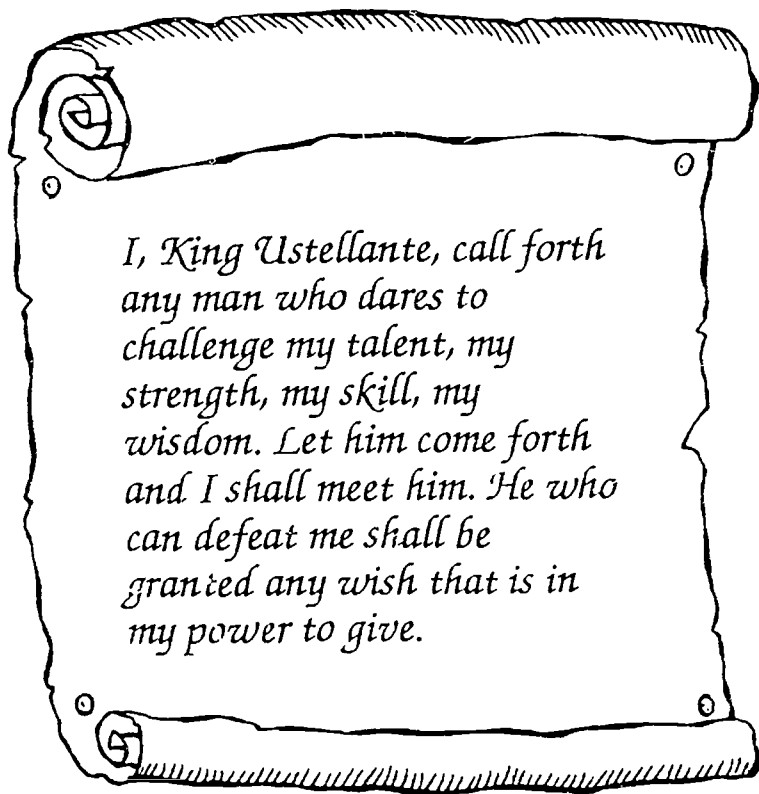 I, King Ustellante, call forth
any man who dares to
challenge my talent, my
strength, my skill, my
wisdom. Let him come forth
and I shall meet him. He who
can defeat me shall be
granted any wish that is in
my power to give.